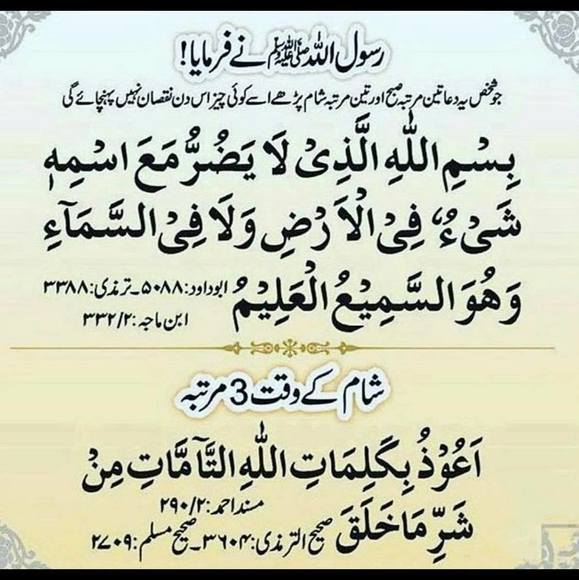 رسول اللہ ﷺ نے فرمایا!
جو شخص یہ دعا تین مرتبہ صبح اور تین مرتبہ شام پڑھے اسے کوئی چیز اس دن نقصان نہیں پہنچائے گی
بِسْمِ اللّٰهِ الَّذِىْ لَا يَضُرُّ مَعَ اسْمِهٖ
شَىْءٌ فِى الْاَرْضِ وَلَا فِى السَّمَآءِ
وَهُوَ السَّمِيْعُ الْعَلِيْمُ ابوداود: ۵۰۸۸۔ ترمذی: ۳۳۸۸
ابن ماجہ: ۳۳۲/۲
شام کے وقت 3 مرتبہ
اَعُوْذُ بِكَلِمَاتِ اللّٰهِ التَّآمَّاتِ مِنْ
شَرِّ مَا خَلَقَ مسند احمد: ۲۹۰/۲
صحیح الترمذی: ۳۶۰۴۔ صحیح مسلم: ۲۷۰۹